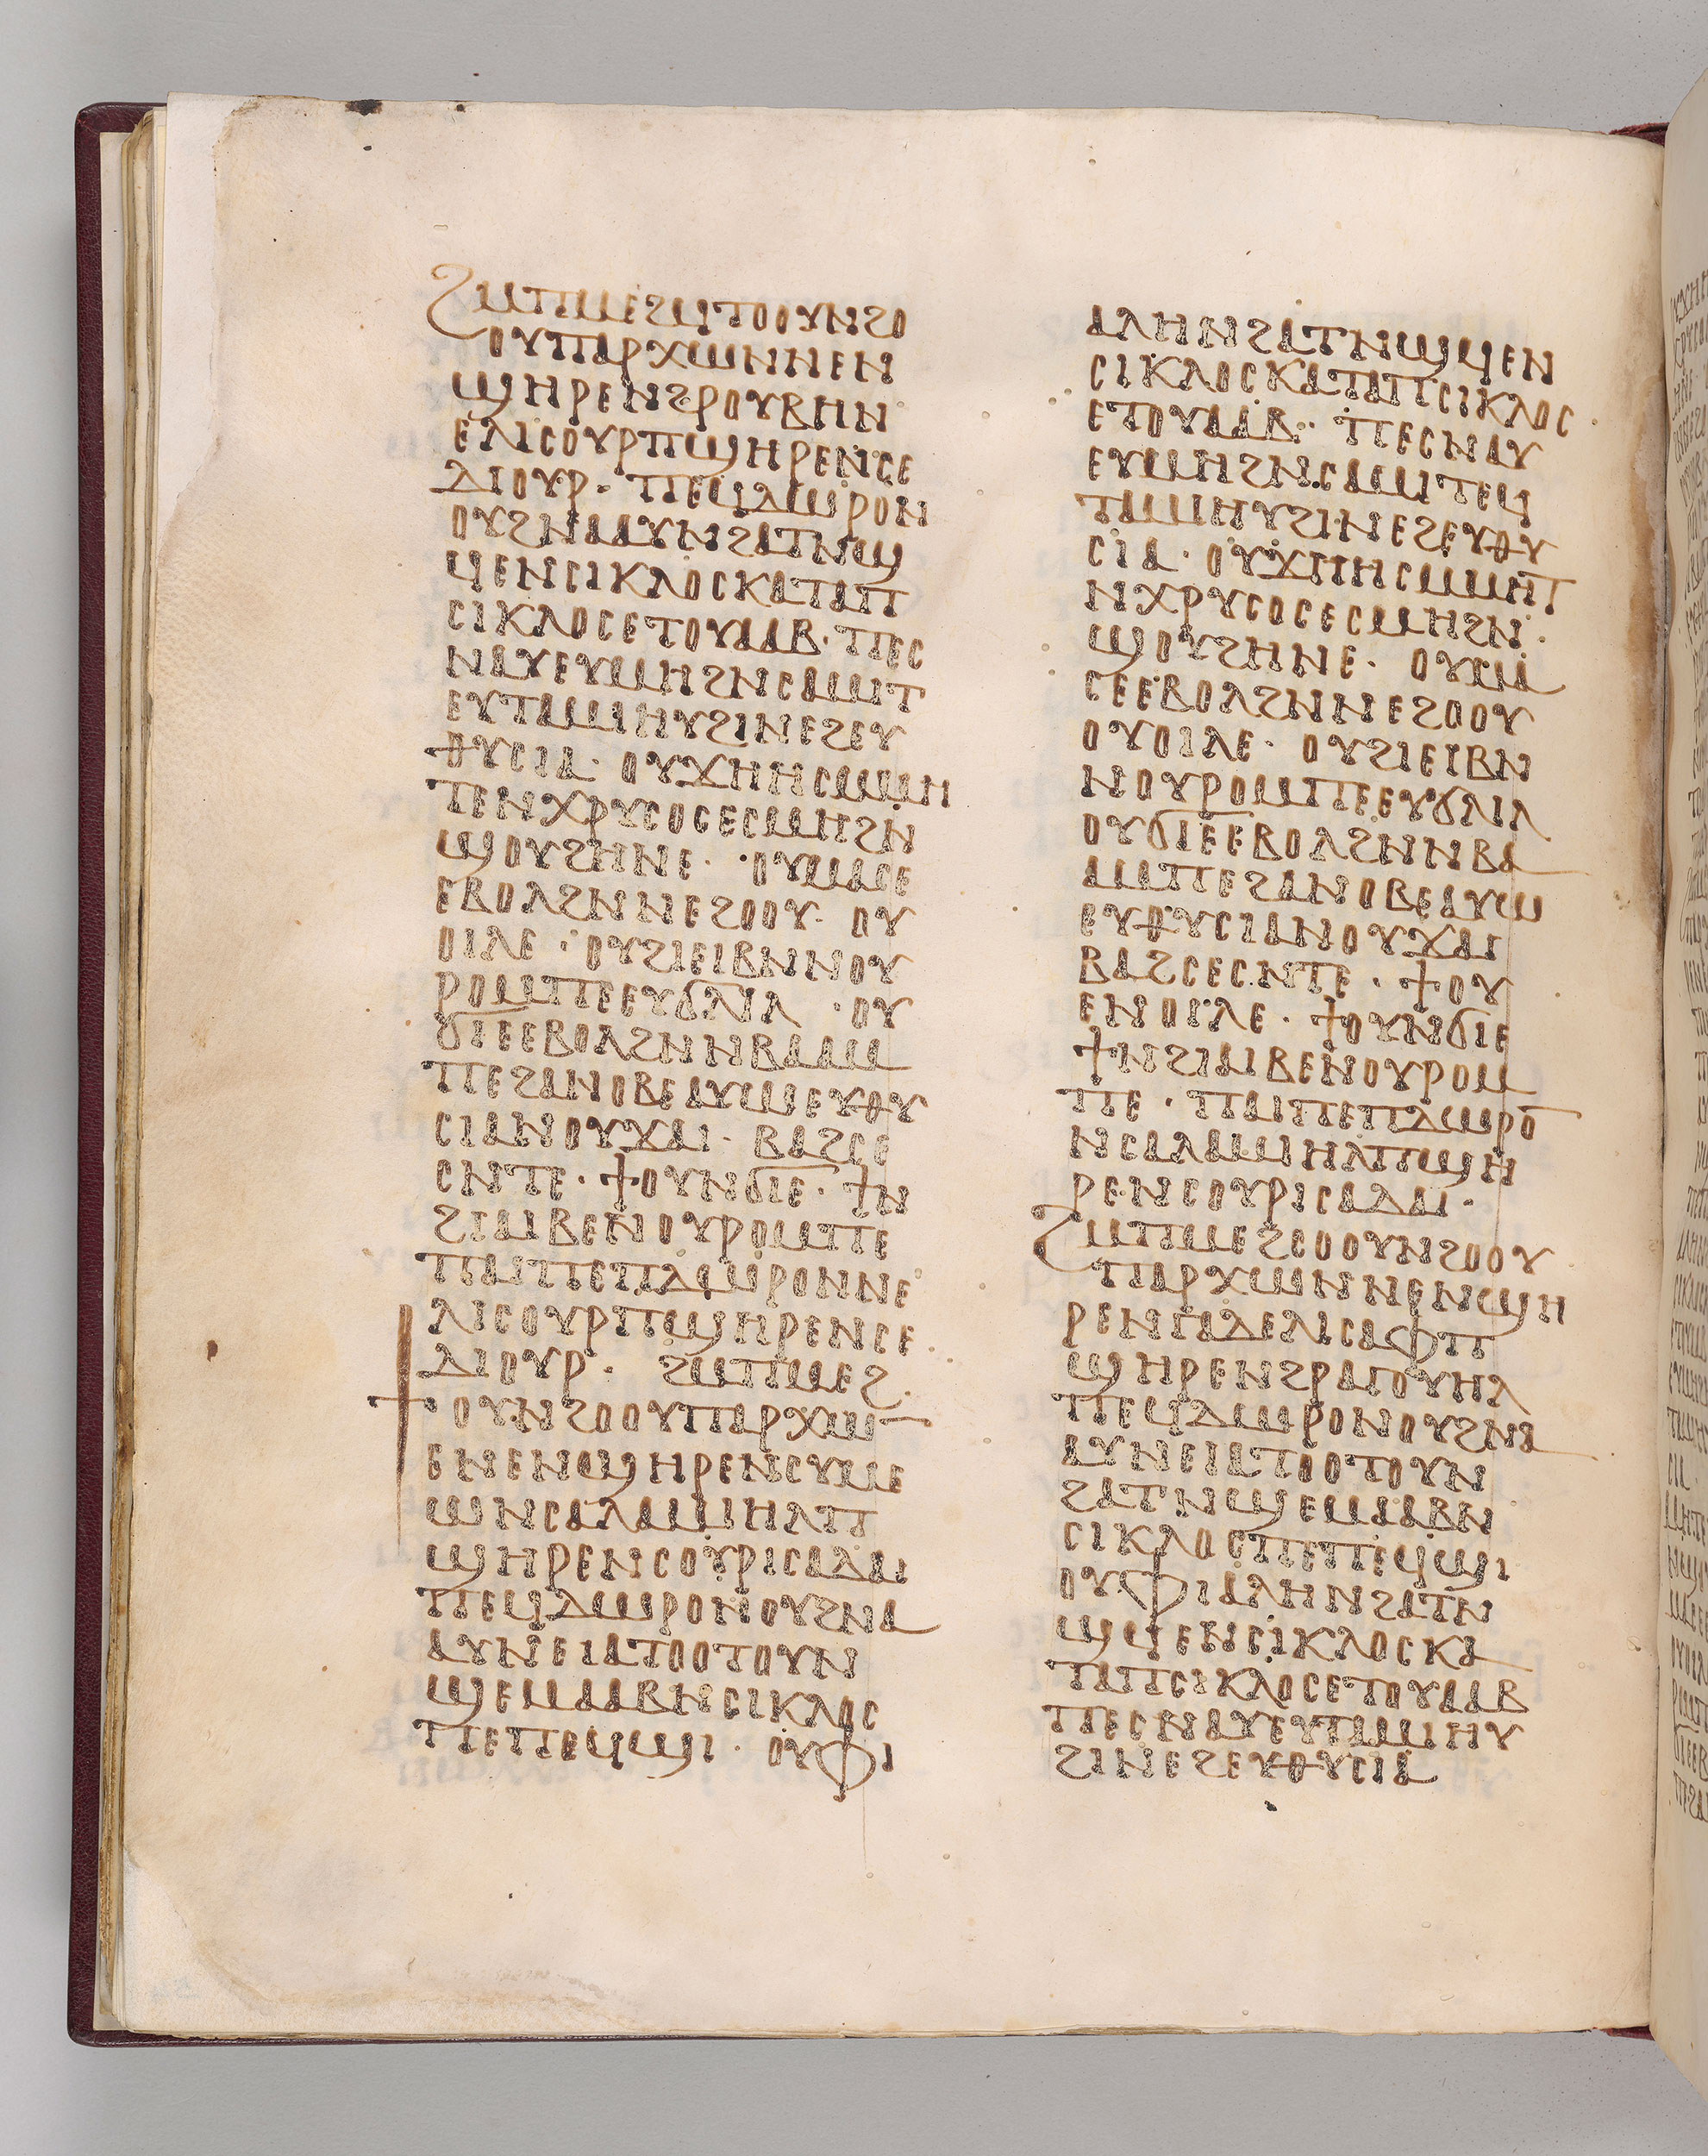 ϨⲘⲠⲘⲈϨϤⲦⲞⲞⲨⲚϨⲞ
ⲞⲨⲠⲀⲢⲬⲰⲚⲚⲈⲚ
ϢⲎⲢⲈⲚϨⲢⲞⲨⲂⲎⲚ
ⲈⲖⲒⲤⲞⲨⲢⲠϢⲎⲢⲈⲚⲤⲈ
ⲆⲒⲞⲨⲢ· ⲠⲈϤⲆⲰⲢⲞⲚ
ⲞⲨϨⲚⲀⲀⲨⲚϨⲀⲦⲚϢ
ϤⲈⲚⲤⲒⲔⲖⲞⲤⲔⲀⲦⲀⲠ
ⲤⲒⲔⲖⲞⲤⲈⲦⲞⲨⲀⲀⲂ· ⲠⲈⲤ
ⲚⲀⲨⲈⲨⲘⲎϨⲚⲤⲀⲘⲒⲦ
ⲈⲨⲦⲀⲘⲎⲨϨⲒⲚⲈϨⲈⲨ
ⲐⲨⲤⲒⲀ· ⲞⲨϪⲎⲎⲤⲘⲘⲎ
ⲦⲈⲚⲬⲢⲨⲤⲞⲤⲈⲤⲘⲎϨⲚ
ϢⲞⲨϨⲎⲚⲈ· ⲞⲨⲘⲀⲤⲈ
ⲈⲂⲞⲖϨⲚⲚⲈϨⲞⲞⲨ· ⲞⲨ
ⲞⲒⲖⲈ· ⲞⲨϨⲒⲈⲒⲂⲚⲚⲞⲨ
ⲢⲞⲘⲠⲈⲈⲨϬⲖⲒⲖ· ⲞⲨ
ϬⲒⲈⲈⲂⲞⲖϨⲚⲚⲂⲀⲀⲘ
ⲠⲈϨⲀⲚⲞⲂⲈⲀⲨⲰⲈⲨⲐⲨ
ⲤⲒⲀⲚⲞⲨϪⲀⲒ· ⲂⲀϨⲤⲈ
ⲤⲚⲦⲈ· ϮⲞⲨⲚϬⲒⲈ· ϮⲚ
ϨⲒⲀⲒⲂⲈⲚⲞⲨⲢⲞⲘⲠⲈ
ⲠⲀⲒⲠⲈⲠⲆⲰⲢⲞⲚⲚⲈ
ⲖⲒⲤⲞⲨⲢⲠϢⲎⲢⲈⲚⲤⲈ
ⲆⲒⲞⲨⲢ· ϨⲘⲠⲘⲈϨ
ϮⲞⲨⲚϨⲞⲞⲨⲠⲀⲢⲬⲰ
ⲈⲚⲈⲚϢⲎⲢⲈⲚⲤⲨⲘⲈ
ⲰⲚⲤⲀⲖⲀⲘⲒⲎⲖⲠ
ϢⲎⲢⲈⲚⲤⲞⲨⲢⲒⲤⲀⲆⲀⲒ
ⲠⲈϤⲆⲰⲢⲞⲚⲞⲨϨⲚⲀ
ⲀⲨⲚⲈⲒⲀⲦⲞⲞⲦⲞⲨⲚ
ϢⲈⲘⲀⲀⲂⲚⲤⲒⲔⲖⲞⲤ
ⲠⲈⲠⲈϤϢⲒ· ⲞⲨⲪⲒ
ⲀⲖⲎⲚϨⲀⲦⲚϢϤⲈⲚ
ⲤⲒⲔⲖⲞⲤⲔⲀⲦⲀⲠⲤⲒⲔⲖⲞⲤ
ⲈⲦⲞⲨⲀⲀⲂ· ⲠⲈⲤⲚⲀⲨ
ⲈⲨⲘⲎϨⲚⲤⲀⲘⲒⲦⲈϤ
ⲦⲀⲘⲎⲨϨⲒⲚⲈϨⲈⲨⲐⲨ
ⲤⲒⲀ· ⲞⲨϪⲎⲎⲤⲘⲘⲎⲦ
ⲚⲬⲢⲨⲤⲞⲤⲈⲤⲘⲎϨⲚ
ϢⲞⲨϨⲎⲚⲈ· ⲞⲨⲘⲀ
ⲤⲈⲈⲂⲞⲖϨⲚⲚⲈϨⲞⲞⲨ
ⲞⲨⲞⲒⲖⲈ· ⲞⲨϨⲒⲈⲒⲂⲚ
ⲚⲞⲨⲢⲞⲘⲠⲈⲈⲨϬⲖⲒⲖ
ⲞⲨϬⲒⲈⲈⲂⲞⲖϨⲚⲚⲂⲀ
ⲀⲘⲠⲈϨⲀⲚⲞⲂⲈⲀⲨⲰ
ⲈⲨⲐⲨⲤⲒⲀⲚⲞⲨϪⲀⲒ
ⲂⲀϨⲤⲈⲤⲚⲦⲈ· ϮⲞⲨ
ⲈⲚⲞⲒⲖⲈ· ϮⲞⲨⲚϬⲒⲈ
ϮⲚϨⲒⲀⲒⲂⲈⲚⲞⲨⲢⲞⲘ
ⲠⲈ· ⲠⲀⲒⲠⲈⲠⲆⲰⲢⲞ
ⲚⲤⲀⲖⲀⲘⲒⲎⲖⲠϢⲎ
ⲢⲈⲚⲤⲞⲨⲢⲒⲤⲀⲆⲀⲒ·
ϨⲘⲠⲘⲈϨⲤⲞⲞⲨⲚϨⲞⲞⲨ
ⲠⲀⲢⲬⲰⲚⲚⲈⲚϢⲎ
ⲢⲈⲚⲄⲀⲆⲈⲖⲒⲤⲀⲪⲠ
ϢⲎⲢⲈⲚϨⲢⲀⲄⲞⲨⲎⲖ
ⲠⲈϤⲆⲰⲢⲞⲚⲞⲨϨⲚⲀ
ⲀⲨⲚⲈⲒⲀⲦⲞⲞⲦⲞⲨⲚ
ϨⲀⲦⲚϢⲈⲘⲀⲀⲂⲚ
ⲤⲒⲔⲖⲞⲤⲠⲈⲠⲈϤϢⲒ
ⲞⲨⲪⲒⲀⲖⲎⲚϨⲀⲦⲚ
ϢϤⲈⲚⲤⲒⲔⲖⲞⲤⲔⲀ
ⲦⲀⲠⲤⲒⲔⲖⲞⲤⲈⲦⲞⲨⲀⲀⲂ
ⲠⲈⲤⲚⲀⲨⲈⲨⲦⲀⲘⲎⲨ
ϨⲒⲚⲈϨⲈⲨⲐⲨⲤⲒⲀ